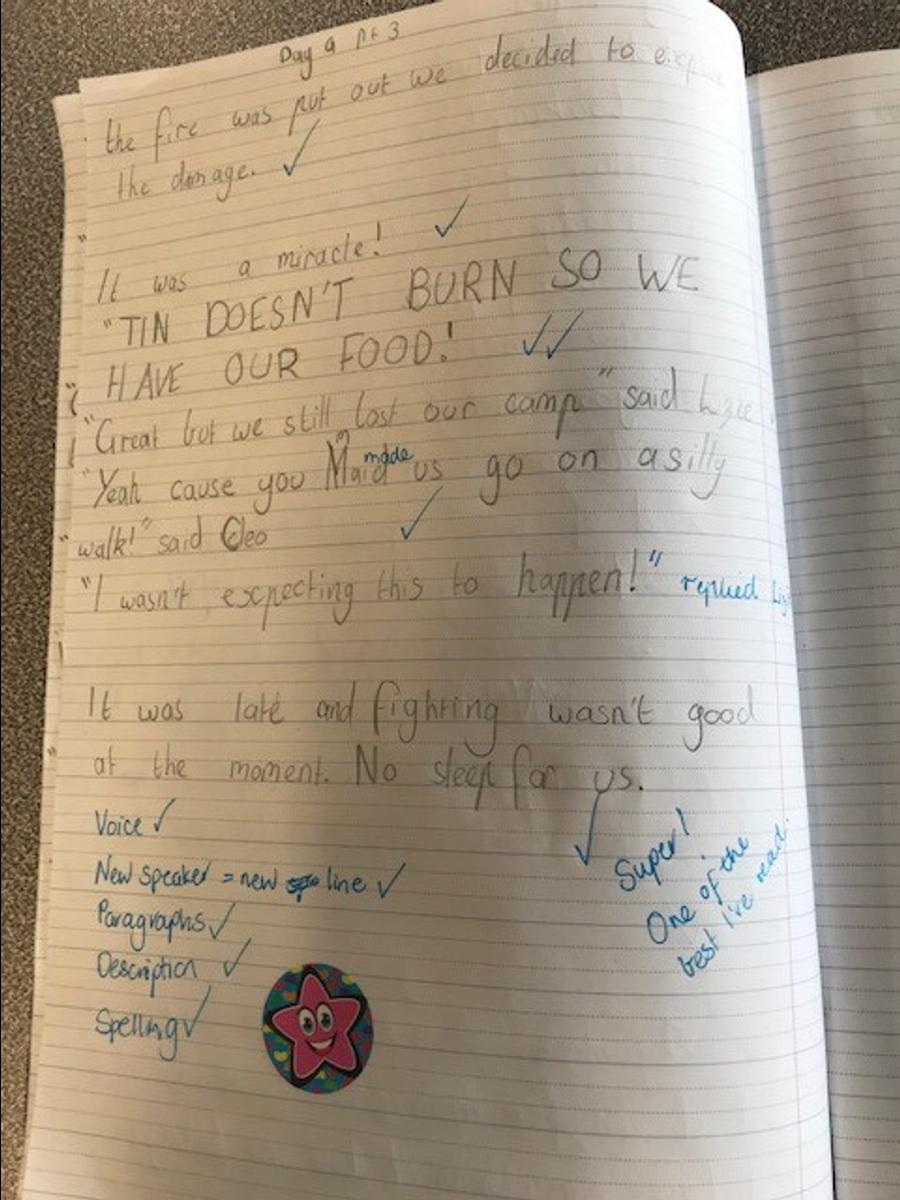 Day 9 pt 3
the fire was put out we decided to
the damage.
It was a miracle!
"TIN DOESN'T BURN SO WE
HAVE OUR FOOD!
"Great but we still lost our camp" said
made
"Yeah cause you Maid us go on a silly
walk!" said Cleo
"I wasn't escpecting this to happen!" replied
It was late and fighting wasn't good
at the moment. No sleep for us.
Voice ✓
New speaker = new line ✓
Paragraphs ✓
Description ✓
Spelling ✓
Super!
One of the
best I've read.